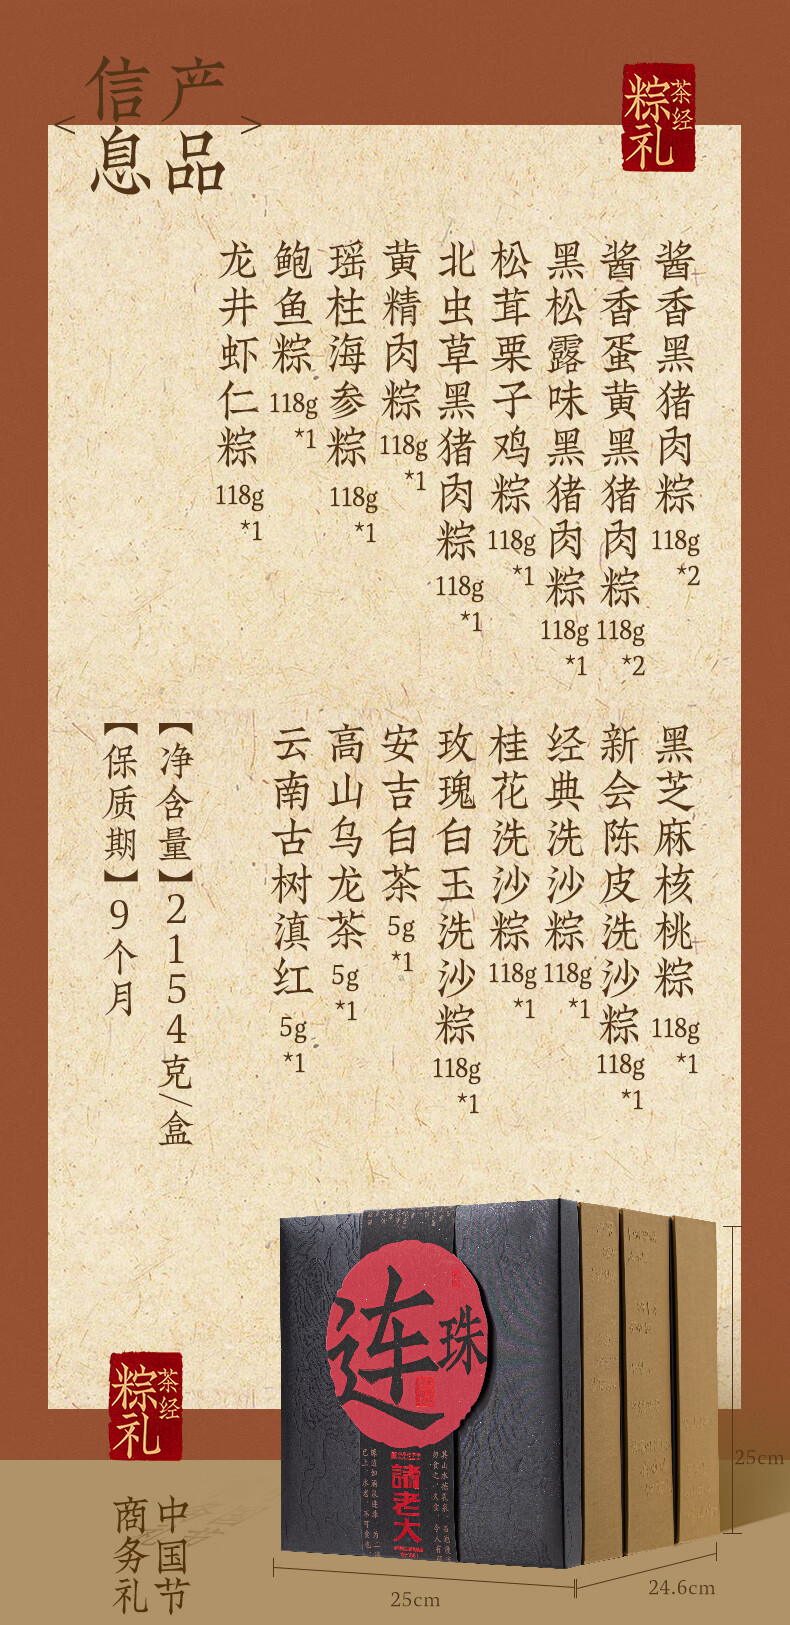 产品
信息
茶经
粽礼
酱香黑猪肉粽 118g*2
酱香蛋黄黑猪肉粽 118g*2
黑松露味黑猪肉粽 118g*1
松茸栗子鸡粽 118g*1
北虫草黑猪肉粽 118g*1
黄精肉粽 118g*1
瑶柱海参粽 118g*1
鲍鱼粽 118g*1
龙井虾仁粽 118g*1
黑芝麻核桃粽 118g*1
新会陈皮洗沙粽 118g*1
经典洗沙粽 118g*1
桂花洗沙粽 118g*1
玫瑰白玉洗沙粽 118g*1
安吉白茶 5g*1
高山乌龙茶 5g*1
云南古树滇红 5g*1
【净含量】2154克/盒
【保质期】9个月
连珠
諸老大
25cm
25cm
24.6cm
茶经
粽礼
中国节
商务礼